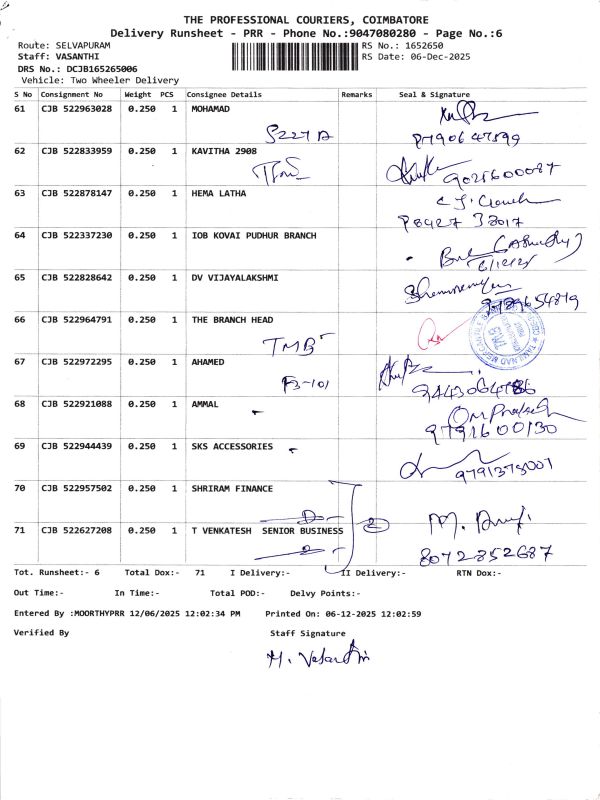 THE PROFESSIONAL COURIERS, COIMBATORE
Delivery Runsheet - PRR - Phone No.:9047080280 - Page No.:6
Route: SELVAPURAM
RS No.: 1652650
Staff: VASANTHI
RS Date: 06-Dec-2025
DRS No.: DCJB165265006
Vehicle: Two Wheeler Delivery
S No Consignment No Weight PCS Consignee Details Remarks Seal & Signature
61 CJB 522963028 0.250 1 MOHAMAD
S227 A
62 CJB 522833959 0.250 1 KAVITHA 2908
9025600087
63 CJB 522878147 0.250 1 HEMA LATHA
64 CJB 522337230 0.250 1 IOB KOVAI PUDHUR BRANCH
6/12/25
65 CJB 522828642 0.250 1 DV VIJAYALAKSHMI
66 CJB 522964791 0.250 1 THE BRANCH HEAD
TMB
67 CJB 522972295 0.250 1 AHAMED
F3-101
68 CJB 522921088 0.250 1 AMMAL
Om Prakash
9791600130
69 CJB 522944439 0.250 1 SKS ACCESSORIES
9791375007
70 CJB 522957502 0.250 1 SHRIRAM FINANCE
2
71 CJB 522627208 0.250 1 T VENKATESH SENIOR BUSINESS
8072352687
Tot. Runsheet:- 6 Total Dox:- 71 I Delivery:- II Delivery:- RTN Dox:-
Out Time:- In Time:- Total POD:- Delvy Points:-
Entered By :MOORTHYPRR 12/06/2025 12:02:34 PM Printed On: 06-12-2025 12:02:59
Verified By Staff Signature
M. Vasanthi